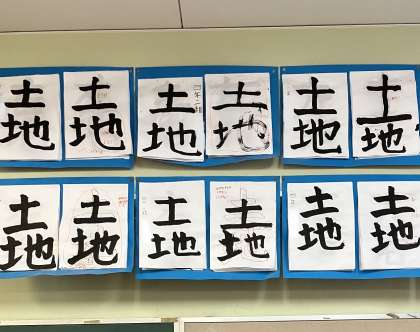 土地
土地
土地
土地
土地
土地
土地
土地
土地
土地
土地
土地